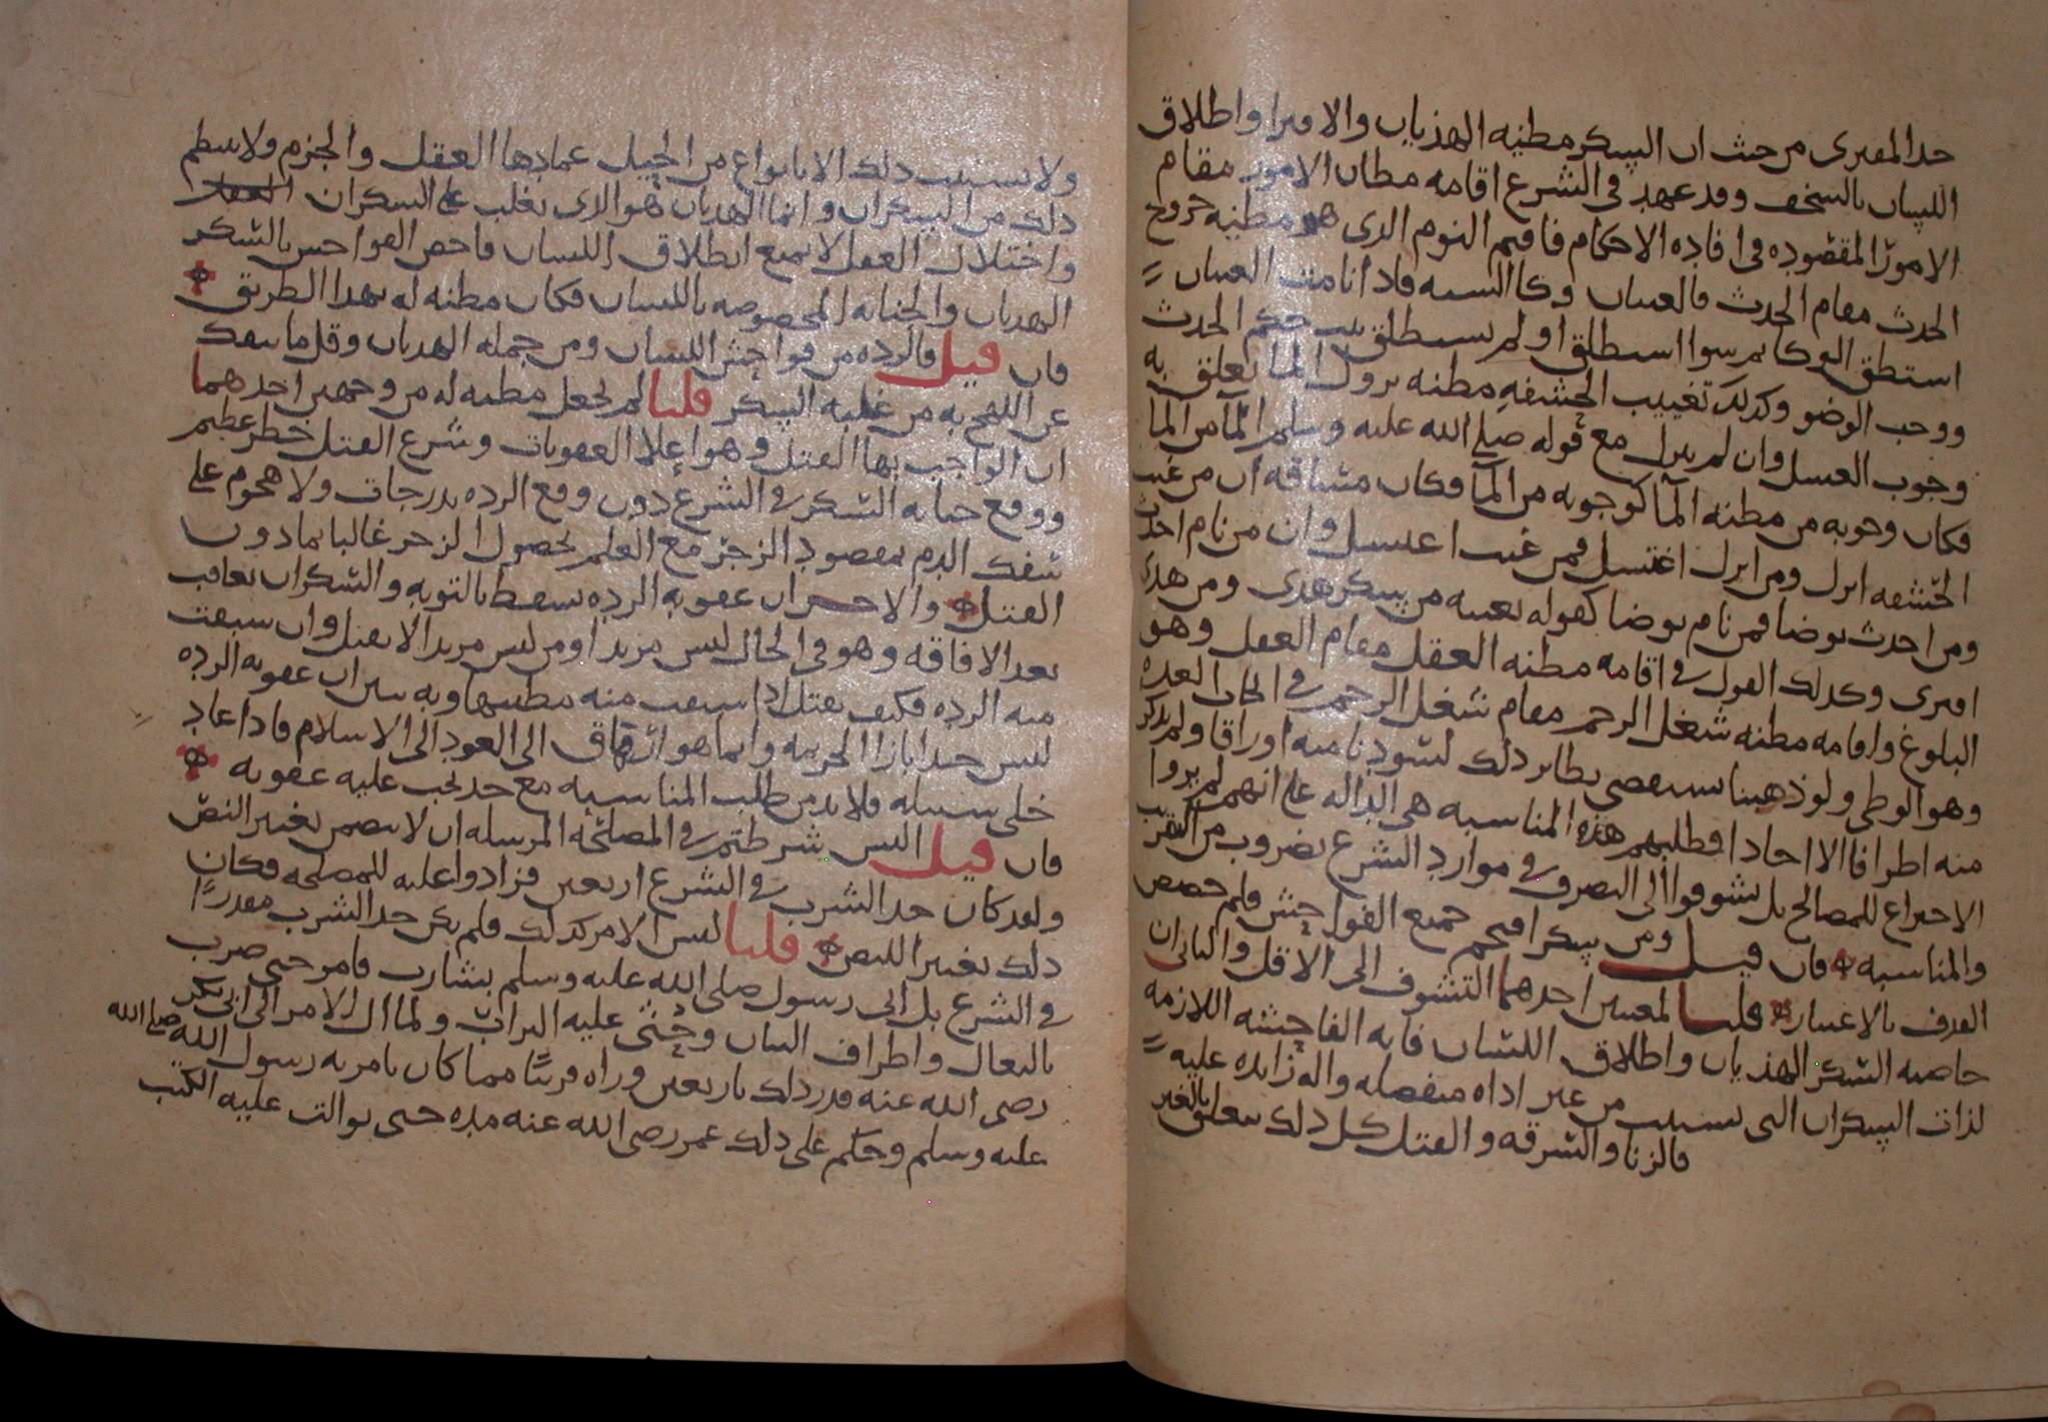 حد المفترى من حيث ان السكر مظنه الهذيان والافترا واطلاق
اللسان بالسخف وقد عهد في الشرع اقامه مظان الامور مقام
الامور المقصوده في افاده الاحكام فاقيم النوم الذي هو مظنه خروج
الحدث مقام الحدث فالعينان وكا السه فاذا نامت العينان
استطلق الوكا ثم سوا استطلق او لم يستطلق حكم الحدث
ووجب الوضو وكذلك تغييب الحشفه مظنه نزول الما تعلق به
وجوب الغسل وان لم ينزل مع قوله صلى الله عليه وسلم الما من الما
فكان وجوبه من مظنه الما كوجوبه من الما فكان مساقه ان من غيب
الحشفه انزل ومن انزل اغتسل فمن غيب اغتسل وان من نام احدث
ومن احدث توضا فمن نام توضا كقوله بعينه من سكر هذى ومن هذى
افترى وكذلك القول في اقامه مظنه العقل مقام العقل وهو
البلوغ واقامه مظنه شغل الرحم مقام شغل الرحم في ايجاب العده
وهو الوطى ولو ذهبنا نستقصى نظاير ذلك لسودنا منه اوراقا ولم نذكر
منه اطرافا الا احادا فطلبهم هذه المناسبه هي الداله على انهم لم يروا
الاختراع للمصالح بل تشوفوا الى التصرف في موارد الشرع بضروب من التقريب
والمناسبه فان قيل ومن سكر اقتحم جميع الفواحش فلم خصص
القذف بالاعتبار قلنا لمعنيين احدهما التشوف الى الاقل والثاني ان
خاصيه السكر الهذيان واطلاق اللسان فانه الفاحشه اللازمه
لذات السكران التي تستتب من غير اداه منفصله واله زايده عليه
فالزنا والسرقه والقتل كل ذلك يتعلق بالغير
ولا يستتب ذلك الا بانواع من الحيل عمادها العقل والحزم ولا ينتظم
ذلك من السكران وانما الهذيان هو الذي يغلب على السكران
واختلال العقل لا يمنع انطلاق اللسان فاخص الفواحش بالسكر
الهذيان والجنايه المخصوصه باللسان فكان مظنه له بهذا الطريق
فان قيل فالرده من فواحش اللسان ومن جمله الهذيان وقل ما ينفك
عن اللهج به من غلبه السكر قلنا لم نجعل مظنه له من وجهين احدهما
ان الواجب بها القتل وهو اعلا العقوبات وشرع القتل خطر عظيم
ووقع جنايه السكر في الشرع دون وقع الرده بدرجات ولا هجوم على
سفك الدم بمقصود الزجر مع العلم بحصول الزجر غالبا بما دون
القتل والاخر ان عقوبه الرده تسقط بالتوبه والسكران يعاقب
بعد الافاقه وهو في الحال ليس مرتدا ومن ليس مرتدا لا يقتل وان سبقت
منه الرده فكيف يقتل اذا سبقت منه مظنتها وبه يتبين ان عقوبه الرده
ليس حدا بازا الجريمه وانما هو ارهاق الى العود الى الاسلام فاذا عاد
خلى سبيله فلا بد من طلب المناسبه مع حد يجب عليه عقوبه
فان قيل اليس شرطتم في المصلحه المرسله ان لا يتضمن تغيير النص
ولقد كان حد الشرب في الشرع اربعين فزادوا عليه للمصلحه فكان
ذلك تغيير النص قلنا ليس الامر كذلك فلم يكن حد الشرب مقدرا
في الشرع بل اتى رسول صلى الله عليه وسلم بشارب فامر حتى ضرب
بالنعال واطراف الثياب وحثى عليه التراب ولما ال الامر الى ابي بكر
رضى الله عنه قدر ذلك باربعين وراه قريبا مما كان يامر به رسول الله صلى الله
عليه وسلم وحكم على ذلك عمر رضى الله عنه مده حتى توالت عليه الكتب